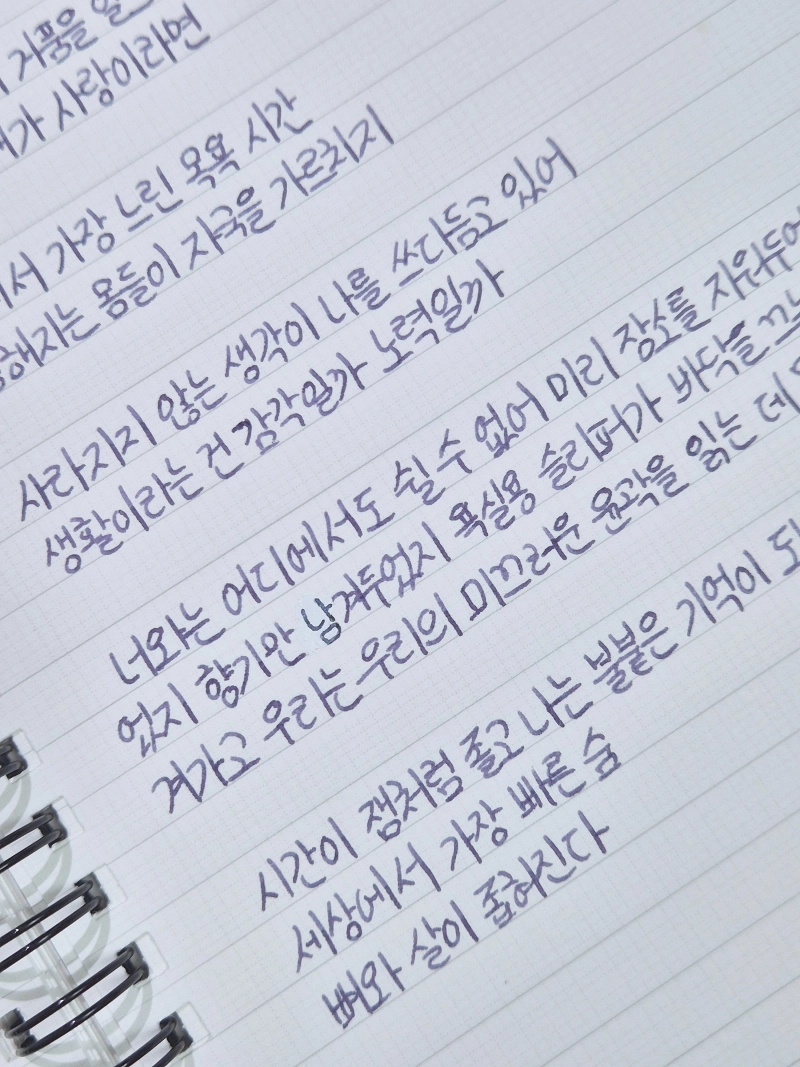 거품을
사랑이라면
가장 느린 목욕 시간
몸들이 자국을 가르치지
사라지지 않는 생각이 나를 쓰다듬고 있어
생활이라는 건 감각일까 노력일까
너와는 어디에서도 쉴 수 없어 미리 장소를 지워두었
없지 향기만 남겨두었지 욕실용 슬리퍼가 바닥을
겨가고 우리는 우리의 미끄러운 윤곽을 읽는 데
시간이 잼처럼 졸고 나는 불붙은 기억이
세상에서 가장 빠른 숨
뼈와 살이 좁혀진다